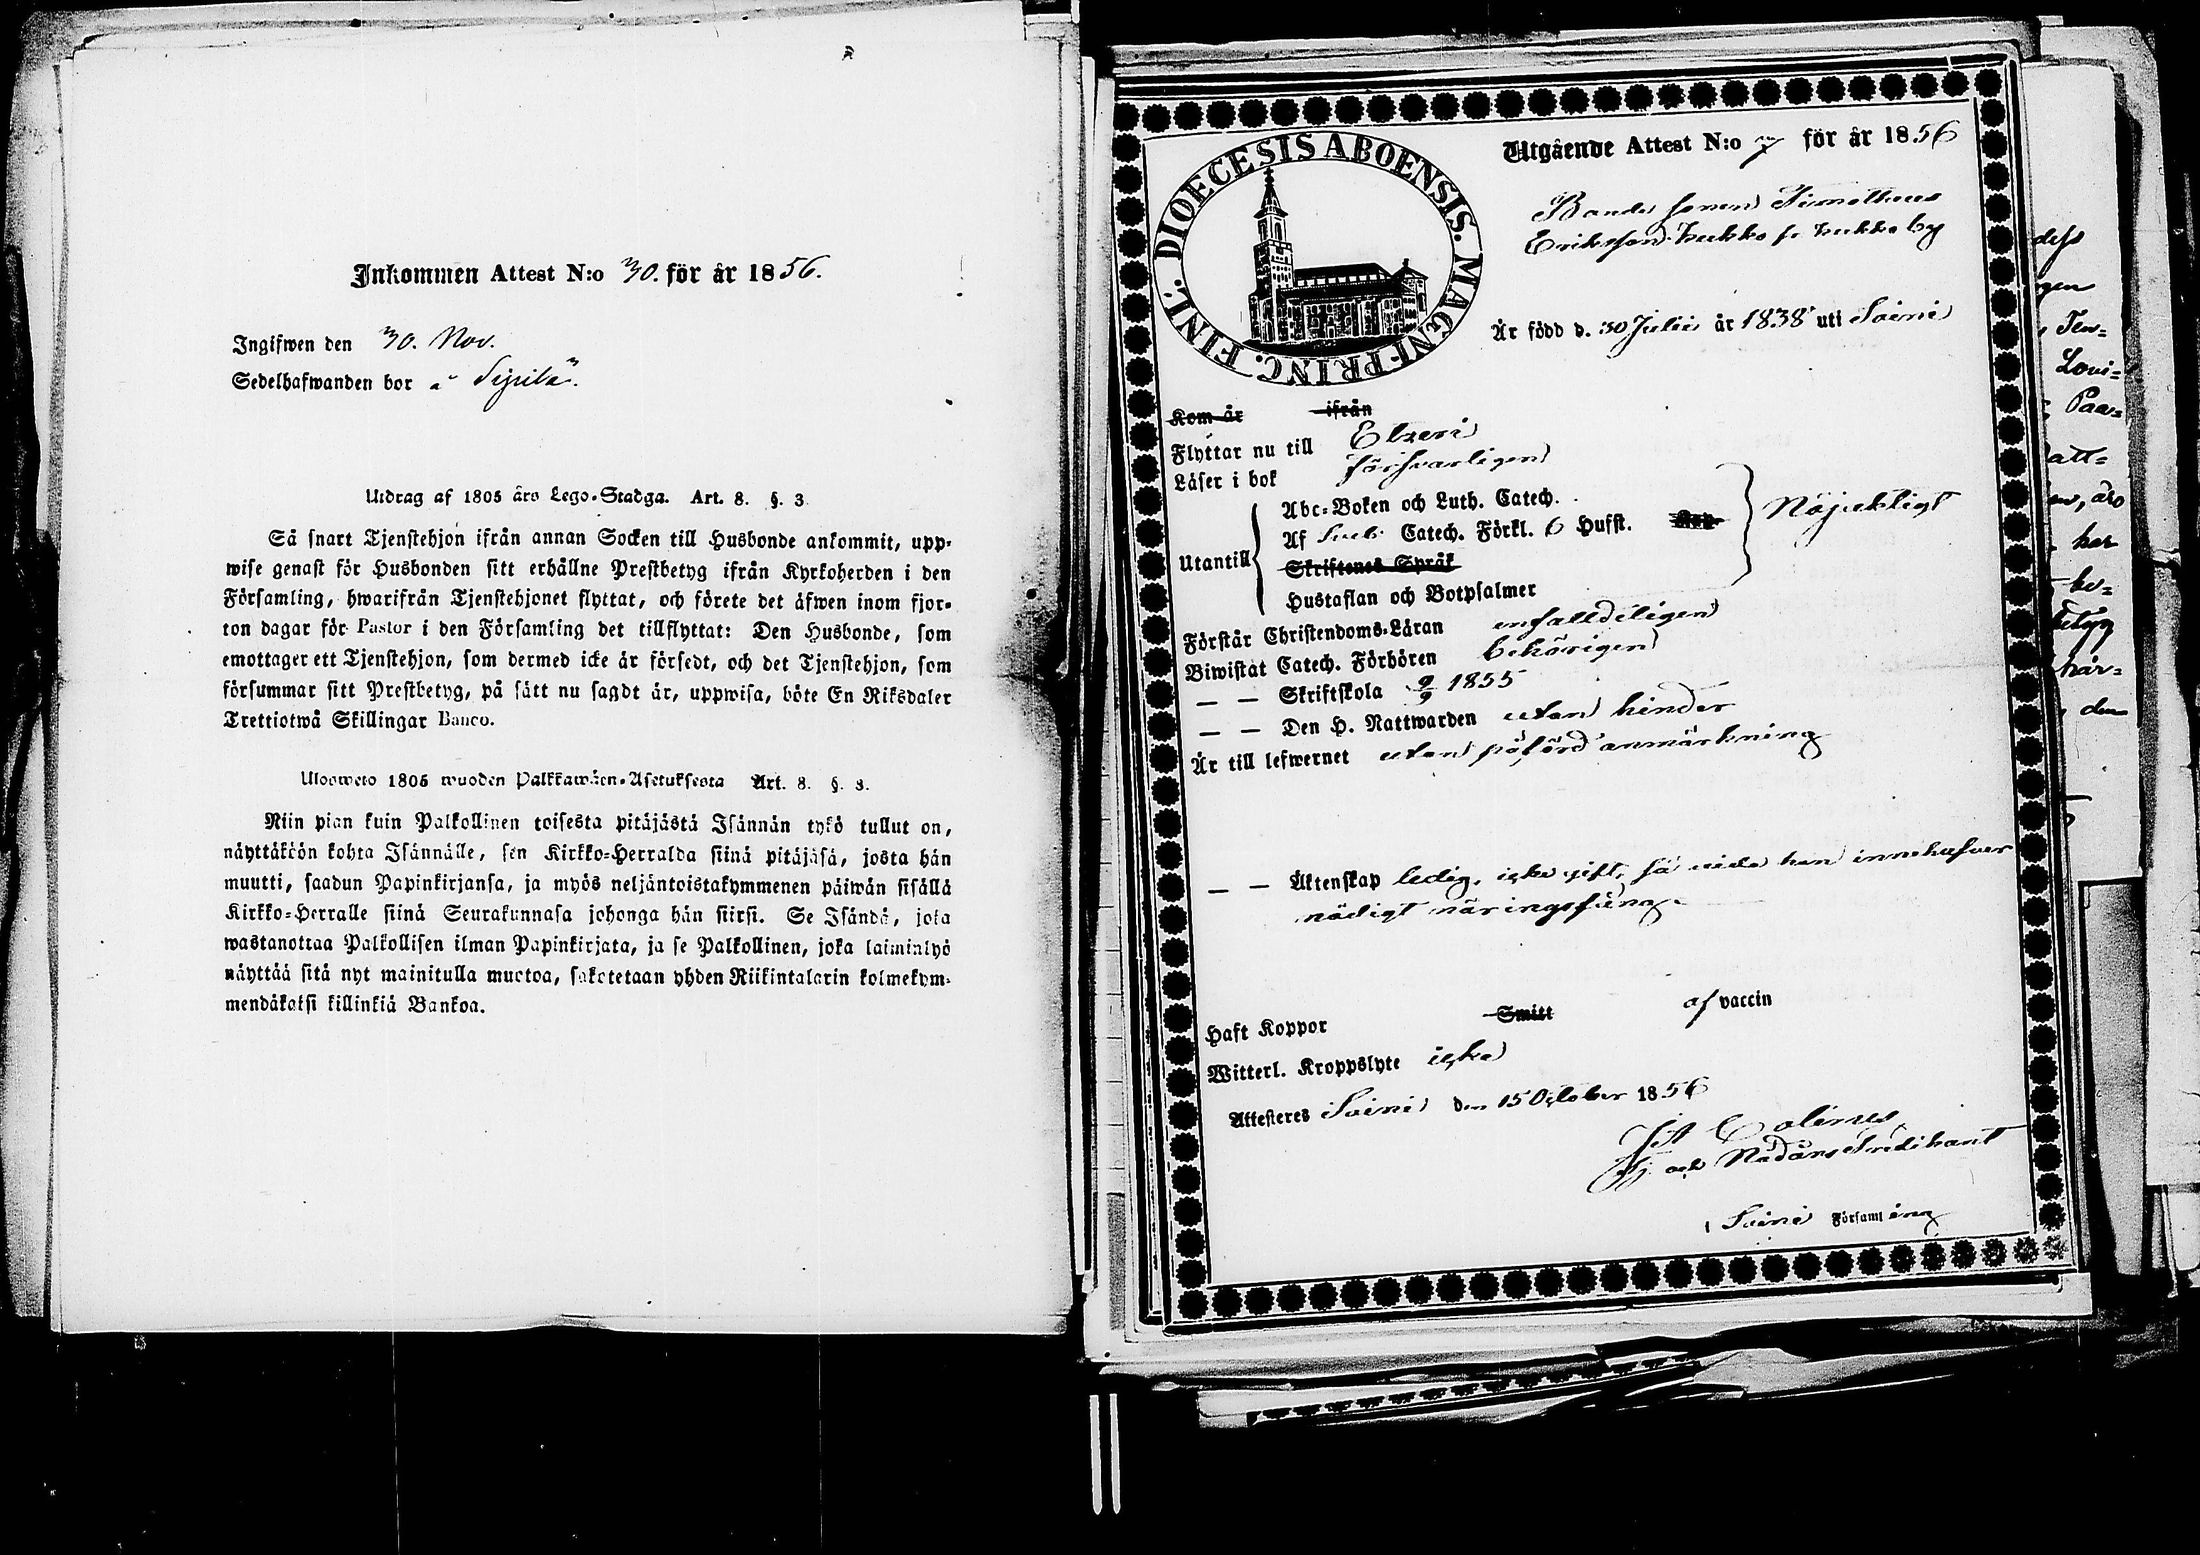 Inkommen Attest N:o 30. för år 1856.
Ingifwen den 30. Nov.
Sedelhafwanden bor å Sipilä.
Utdrag af 1805 års Lego-Stadga. Art. 8. §. 3.
Så snart Tjenstehjon ifrån annan Socken till Husbonde ankommit, upp-
wise genast för Husbonden sitt erhållne Prestbetyg ifrån Kyrkoherden i den
Församling, hwarifrån Tjenstehjonet flyttat, och förete det äfwen inom fjor-
ton dagar för Pastor i den Församling det tillflyttat: Den Husbonde, som
emottager ett Tjenstehjon, som dermed icke är försedt, och det Tjenstehjon, som
försummar sitt Prestbetyg, på sätt nu sagdt är, uppwisa, böte En Riksdaler
Trettiotwå Skillingar Banco.
Ulosweto 1805 wuoden Palkkawäen-Asetuksesta Art. 8. §. 3.
Niin pian kuin Palkollinen toisesta pitäjästä Isännän tykö tullut on,
näyttäköön kohta Isännälle, sen Kirkko-Herralda siinä pitäjäsä, josta hän
muutti, saadun Papinkirjansa, ja myös neljäntoistakymmenen päiwän sisällä
Kirkko-Herralle siinä Seurakunnasa johonga hän siirsi. Se Isändä, joka
wastanottaa Palkollisen ilman Papinkirjata, ja se Palkollinen, joka laiminlyö
näyttää sitä nyt mainitulla muotoa, sakotetaan yhden Riikintalarin kolmekym-
mendäkaksi killinkiä Bankoa.
DIOECESIS ABOENSIS. MAGNI PRINC. FINL.
Utgående Attest N:o 7 för år 1856
Bonde sonen Timotheus
Eriksson Kukko fr Kukko by
Är född d. 30 Julii år 1838 uti Soini
Kom år ifrån
Flyttar nu till Etzeri
Läser i bok försvarligen
Utantill
Abc-Boken och Luth. Catech.
Af Sveb. Catech. Förkl. 6 Hufst.
Skriftenes Språk
Hustaflan och Botpsalmer
Nöjaktigt
Förstår Christendoms-Läran enfalldeligen
Biwistat Catech. Förhören behörigen
— — Skriftskola 9/9 1855
— — Den H. Nattwarden utan hinder
Är till lefwernet utan påförd anmärkning
— — Äktenskap ledig, icke gift, så vida han innehafver
nödigt näringsfång.
Haft Koppor Smitt af vaccin
Witterl. Kroppslyte icke
Attesteres Soini den 15 October 1856
Calinus
Tj. och Nådårs Predikant
i Soini Församling